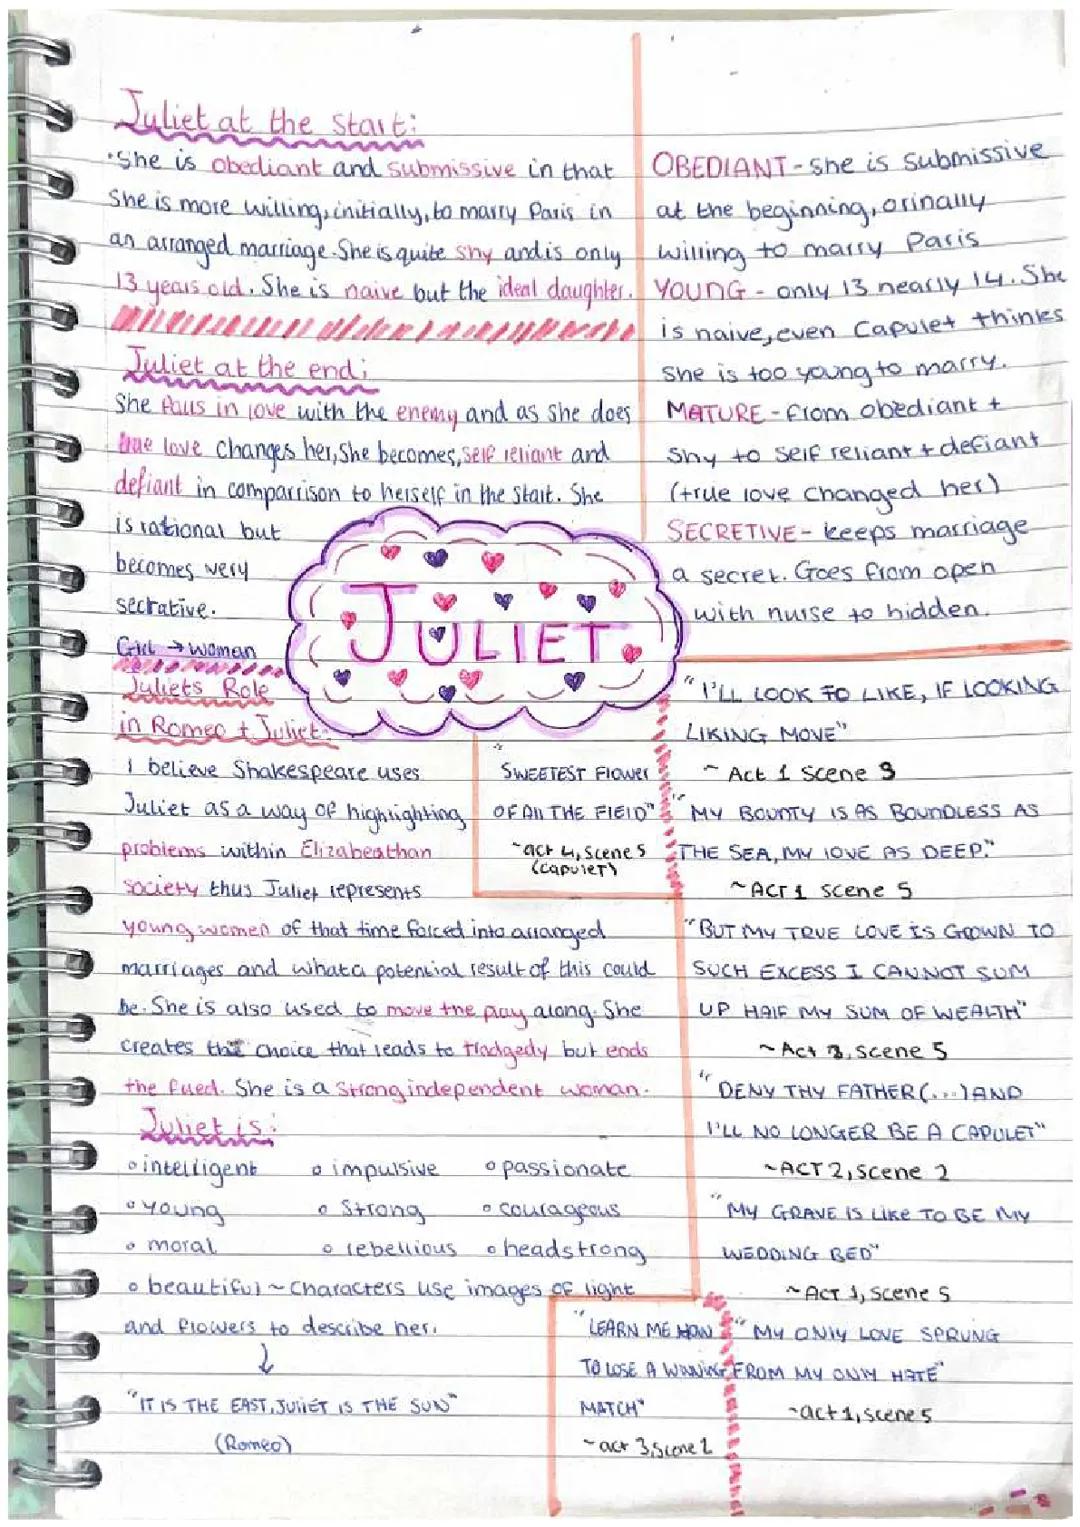 Juliet at the start:
·She is obediant and submissive in that
She is more willing, initially, to marry Paris in
an arranged marriage. She is quite shy and is only
13 years old. She is naive but the ideal daughter.
Juliet at the end:
She falls in love with the enemy and as she does
true love changes her, she becomes, self reliant and
defiant in comparrison to herself in the start. She
is rational but
becomes very
sectative.
Girl → woman
Juliets Role
in Romeo + Juliet:
I believe Shakespeare uses
Juliet as a way of highlighting
problems within Elizabeathan
society thus Juliet represents
young women of that time forced into arranged
marriages and what a potential result of this could
be. She is also used to move the play along. She
creates the choice that leads to tradgedy but ends
the fued. She is a strong independent woman.
Juliet is:
o intelligent o impulsive o passionate
o young o strong o courageous
o moral o rebellious o headstrong
o beautiful ~ characters use images of light
and flowers to describe her.
↓
"IT IS THE EAST, JULIET IS THE SUN"
(Romeo)
JULIET
OBEDIANT - she is submissive
at the beginning, orinally
willing to marry Paris
YOUNG - only 13 nearly 14. She
is naive, even Capulet thinks
she is too young to marry.
MATURE - from obediant +
shy to self reliant + defiant
(true love changed her)
SECRETIVE - keeps marriage
a secret. Goes from open
with nurse to hidden.
"SWEETEST FLOWER
OF All THE FIELD"
~act 4, scene 5
(Capulet)
"I'LL LOOK TO LIKE, IF LOOKING
LIKING MOVE"
~ Act 1 scene 3
"MY BOUNTY IS AS BOUNDLESS AS
THE SEA, MY LOVE AS DEEP."
~Act 1 scene 5
"BUT MY TRUE LOVE IS GROWN TO
SUCH EXCESS I CANNOT SUM
UP HALF MY SUM OF WEALTH"
~Act scene 5
"DENY THY FATHER (...) AND
I'LL NO LONGER BE A CAPULET"
~ACT 2, scene 2
"MY GRAVE IS LIKE TO BE MY
WEDDING BED"
~ACT 1, scene 5
"LEARN ME HOW
TO LOSE A WINNING
MATCH"
~act 3, scene 2
"MY ONLY LOVE SPRUNG
FROM MY ONLY HATE"
~act 1, scene 5